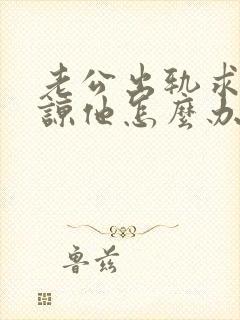 老公出轨求
谅他怎麼办
鲁兹